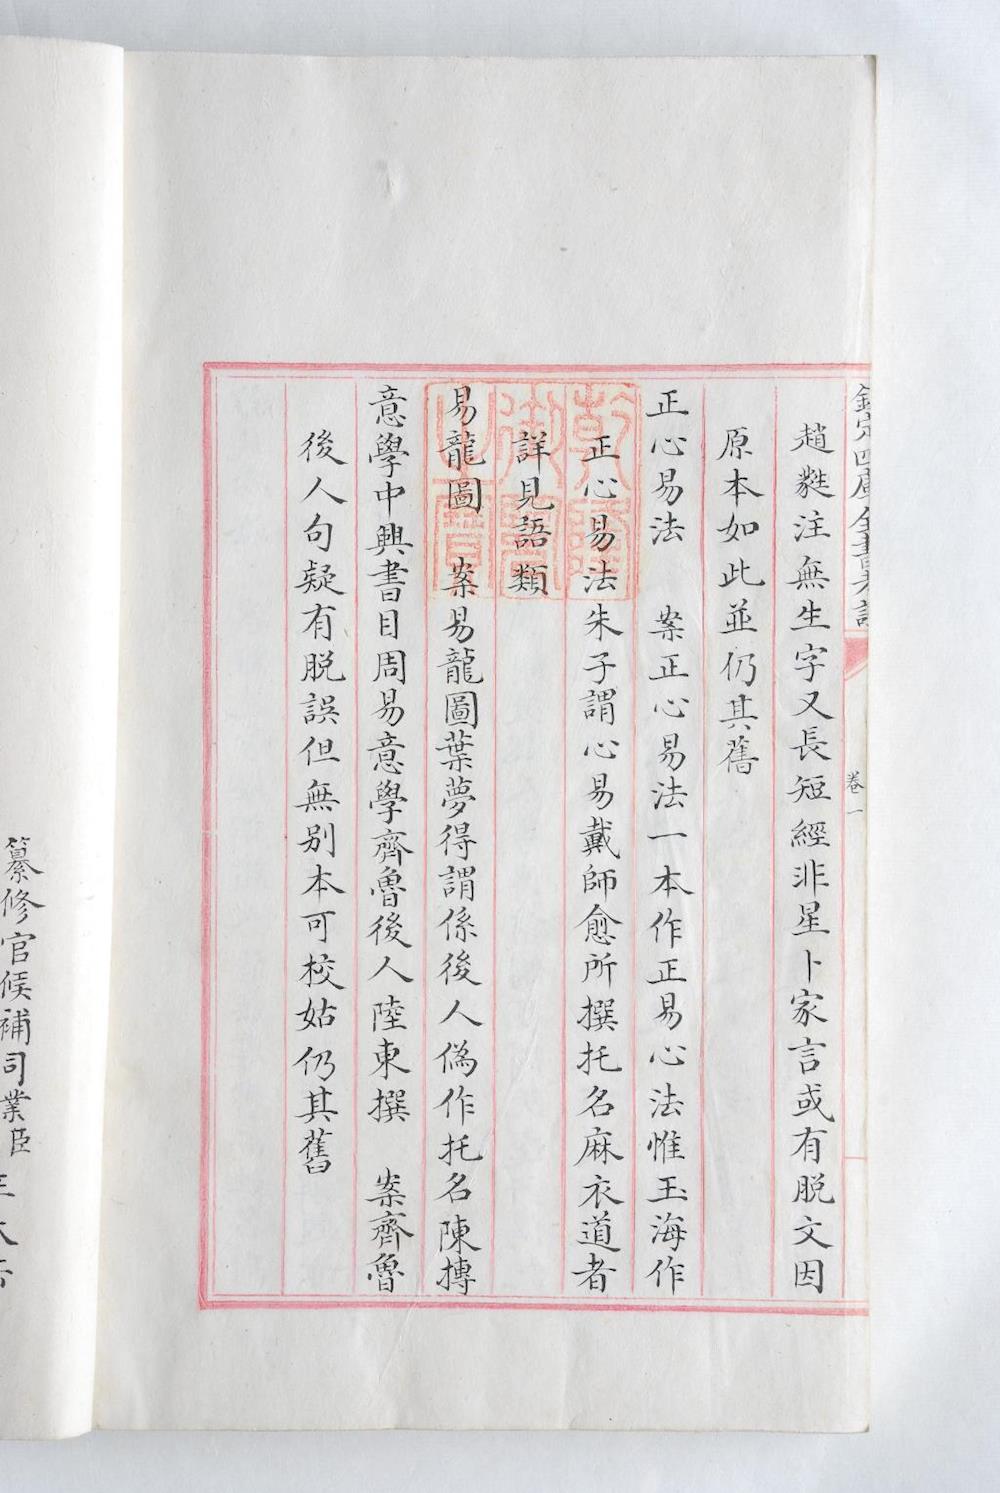 欽定四庫全書考證
卷一
趙蕤注無生字又長短經非星卜家言或有脱文因
原本如此並仍其舊
正心易法　案正心易法一本作正易心法惟玉海作
正心易法朱子謂心易戴師愈所撰托名麻衣道者
詳見語類
易龍圖　案易龍圖葉夢得謂係後人偽作托名陳摶
意學中興書目周易意學齊魯後人陸東撰　案齊魯
後人句疑有脱誤但無别本可校姑仍其舊
乾隆御覽之寶
纂修官候補司業臣